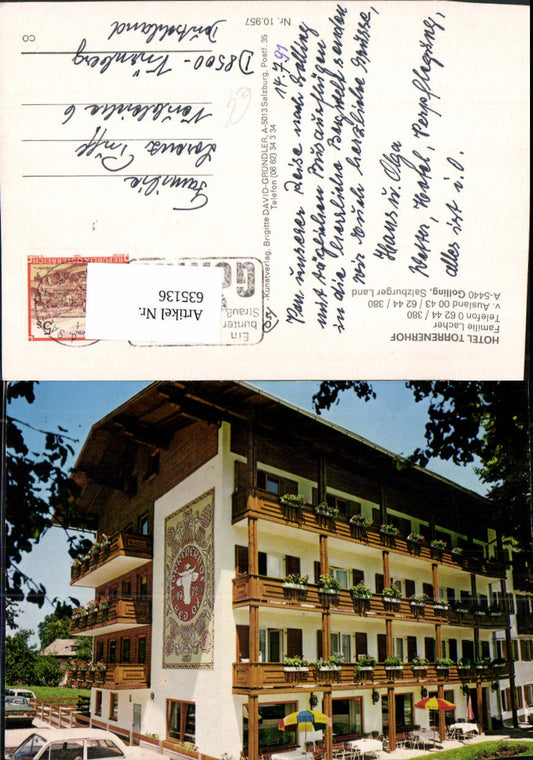 HOTEL TORRENERHOF
Familie Lacher
Telefon 62 44 / 380
v. Ausland 00 43 / 62 44 / 380
A-5440 Golling, Salzburger Land
14.7.91
Von unserer Reise nach Golling
mit täglichen Busausflügen
in die herrliche Bergwelt senden
wir Euch herzliche Grüsse,
Hans u. Olga
Wetter, Hotel, Verpflegung,
alles ist i.O.
Kunstverlag, Brigitte DAVID-GRÜNDLER, A-5013 Salzburg, Postf. 35
Telefon (06 62) 34 3 34
Ein
bunter
Strauß
REPUBLIK ÖSTERREICH
5 S
Artikel Nr.
635136
Familie
Lorenz
D8500 - Nürnberg
Deutschland
Nr. 10.957
CO